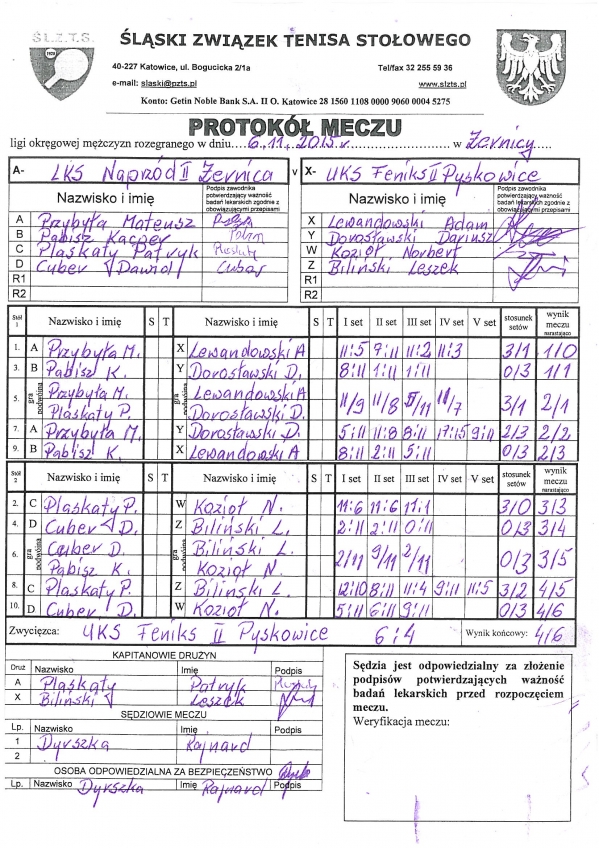 Ś.L.Z.T.S.
1929
ŚLĄSKI ZWIĄZEK TENISA STOŁOWEGO
40-227 Katowice, ul. Bogucicka 2/1a Tel/fax 32 255 59 36
e-mail: slaski@pzts.pl www.slzts.pl
Konto: Getin Noble Bank S.A. II O. Katowice 28 1560 1108 0000 9060 0004 5275
PROTOKÓŁ MECZU
ligi okręgowej mężczyzn rozegranego w dniu....6.11.2015r..........w Żernicy
A- LKS Naprzód II Żernica v X- UKS Feniks II Pyskowice
Nazwisko i imię Podpis zawodnika potwierdzający ważność badań lekarskich zgodnie z obowiązującymi przepisami Nazwisko i imię Podpis zawodnika potwierdzający ważność badań lekarskich zgodnie z obowiązującymi przepisami
A Przybyła Mateusz X Lewandowski Adam
B Pabisz Kacper Y Dorosławski Dariusz
C Plaskaty Patryk W Kozioł Norbert
D Cuber Dawid Cuber Z Biliński Leszek
R1 R1
R2 R2
Stół 1 Nazwisko i imię S T Nazwisko i imię S T I set II set III set IV set V set stosunek setów wynik meczu narastająco
1. A Przybyła M. X Lewandowski A 11:5 9:11 11:2 11:3 3/1 1/0
3. B Pabisz K. Y Dorosławski D. 8:11 1:11 1:11 0/3 1/1
5. gra podwójna Przybyła M. gra podwójna Lewandowski A
Plaskaty P. Dorosławski D. 11/9 11/8 5/11 11/7 3/1 2/1
7. A Przybyła M. Y Dorosławski D. 5:11 11:8 8:11 17:15 9:11 2/3 2/2
9. B Pabisz K. X Lewandowski A 8:11 2:11 5:11 0/3 2/3
Stół 2 Nazwisko i imię S T Nazwisko i imię S T I set II set III set IV set V set stosunek setów wynik meczu narastająco
2. C Plaskaty P. W Kozioł N. 11:6 11:6 11:1 3/0 3/3
4. D Cuber D. Z Biliński L. 2:11 2:11 0:11 0/3 3/4
6. gra podwójna Cuber D. gra podwójna Biliński L.
Pabisz K. Kozioł N. 2/11 9/11 2/11 0/3 3/5
8. C Plaskaty P. Z Biliński L. 12:10 8:11 11:4 9:11 11:5 3/2 4/5
10. D Cuber D. W Kozioł N. 5:11 6:11 9:11 0/3 4/6
Zwycięzca: UKS Feniks II Pyskowice 6:4 Wynik końcowy: 4/6
KAPITANOWIE DRUŻYN
Druż Nazwisko Imię Podpis
A Plaskaty Patryk
X Biliński Leszek
SĘDZIOWIE MECZU
Lp. Nazwisko Imię Podpis
1 Dyrszka Rajnard
2
OSOBA ODPOWIEDZIALNA ZA BEZPIECZEŃSTWO
Lp. Nazwisko Dyrszka Imię Rajnard Podpis
Sędzia jest odpowiedzialny za złożenie
podpisów potwierdzających ważność
badań lekarskich przed rozpoczęciem
meczu.
Weryfikacja meczu: